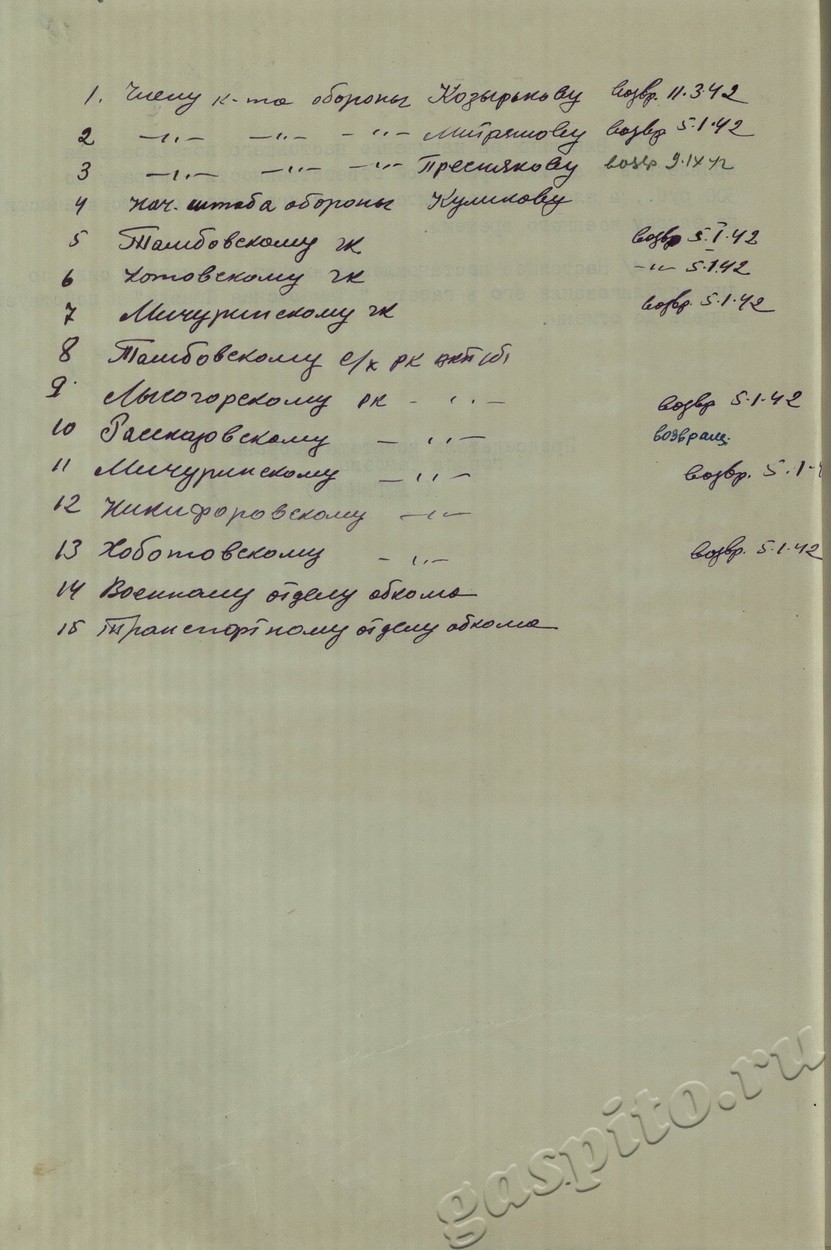 1. Члену к-та обороны Козырькову возвр. 11.3.42
2 —"— —"— —"— Митрямову возвр 5.1.42
3 —"— —"— —"— Преснякову возвр 9.IX
4 Нач. штаба обороны Куликову
5 Тамбовскому гк возвр 5.I.42
6 Котовскому гк —"— 5.1.42
7 Мичуринскому гк возвр. 5.1.42
8 Тамбовскому с/х рк вкп(б)
9. Лысогорскому рк —"— возвр 5.1.42
10 Рассказовскому —"— возвращ.
11 Мичуринскому —"— возвр. 5.1.4
12 Никифоровскому —"—
13 Хоботовскому —"— возвр. 5.1.42
14 Военному отделу обкома
15 Транспортному отделу обкома
gaspito.ru